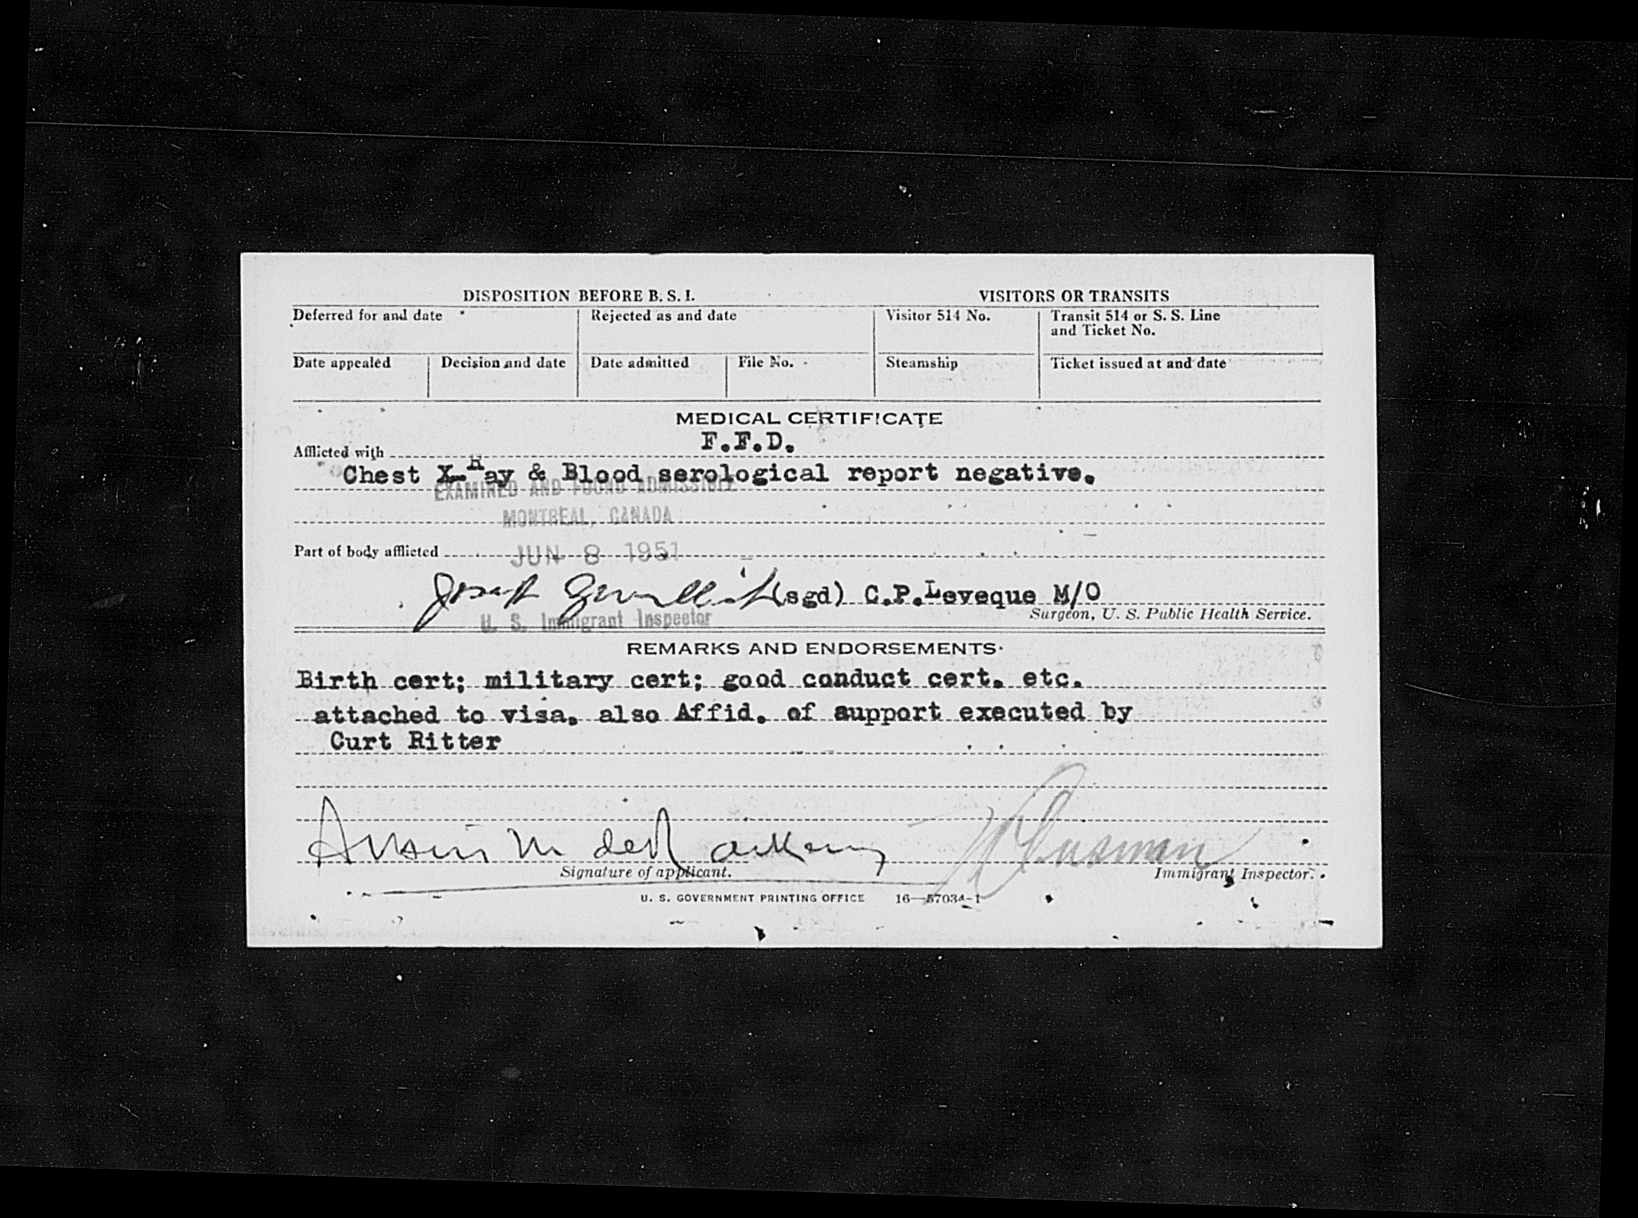 DISPOSITION BEFORE B. S. I.
VISITORS OR TRANSITS
Deferred for and date
Rejected as and date
Visitor 514 No.
Transit 514 or S. S. Line
and Ticket No.
Date appealed
Decision and date
Date admitted
File No.
Steamship
Ticket issued at and date
MEDICAL CERTIFICATE
F.F.D.
Afflicted with
Chest X-Ray & Blood serological report negative.
EXAMINED AND FOUND ADMISSIBLE
MONTREAL, CANADA
Part of body afflicted
JUN 8 1951
Joseph (sgd) C.P.Leveque M/O
Surgeon, U. S. Public Health Service.
U. S. Immigrant Inspector
REMARKS AND ENDORSEMENTS
Birth cert; military cert; good conduct cert. etc.
attached to visa. also Affid. of support executed by
Curt Ritter
Signature of applicant.
Immigrant Inspector.
U. S. GOVERNMENT PRINTING OFFICE 16—57034-1